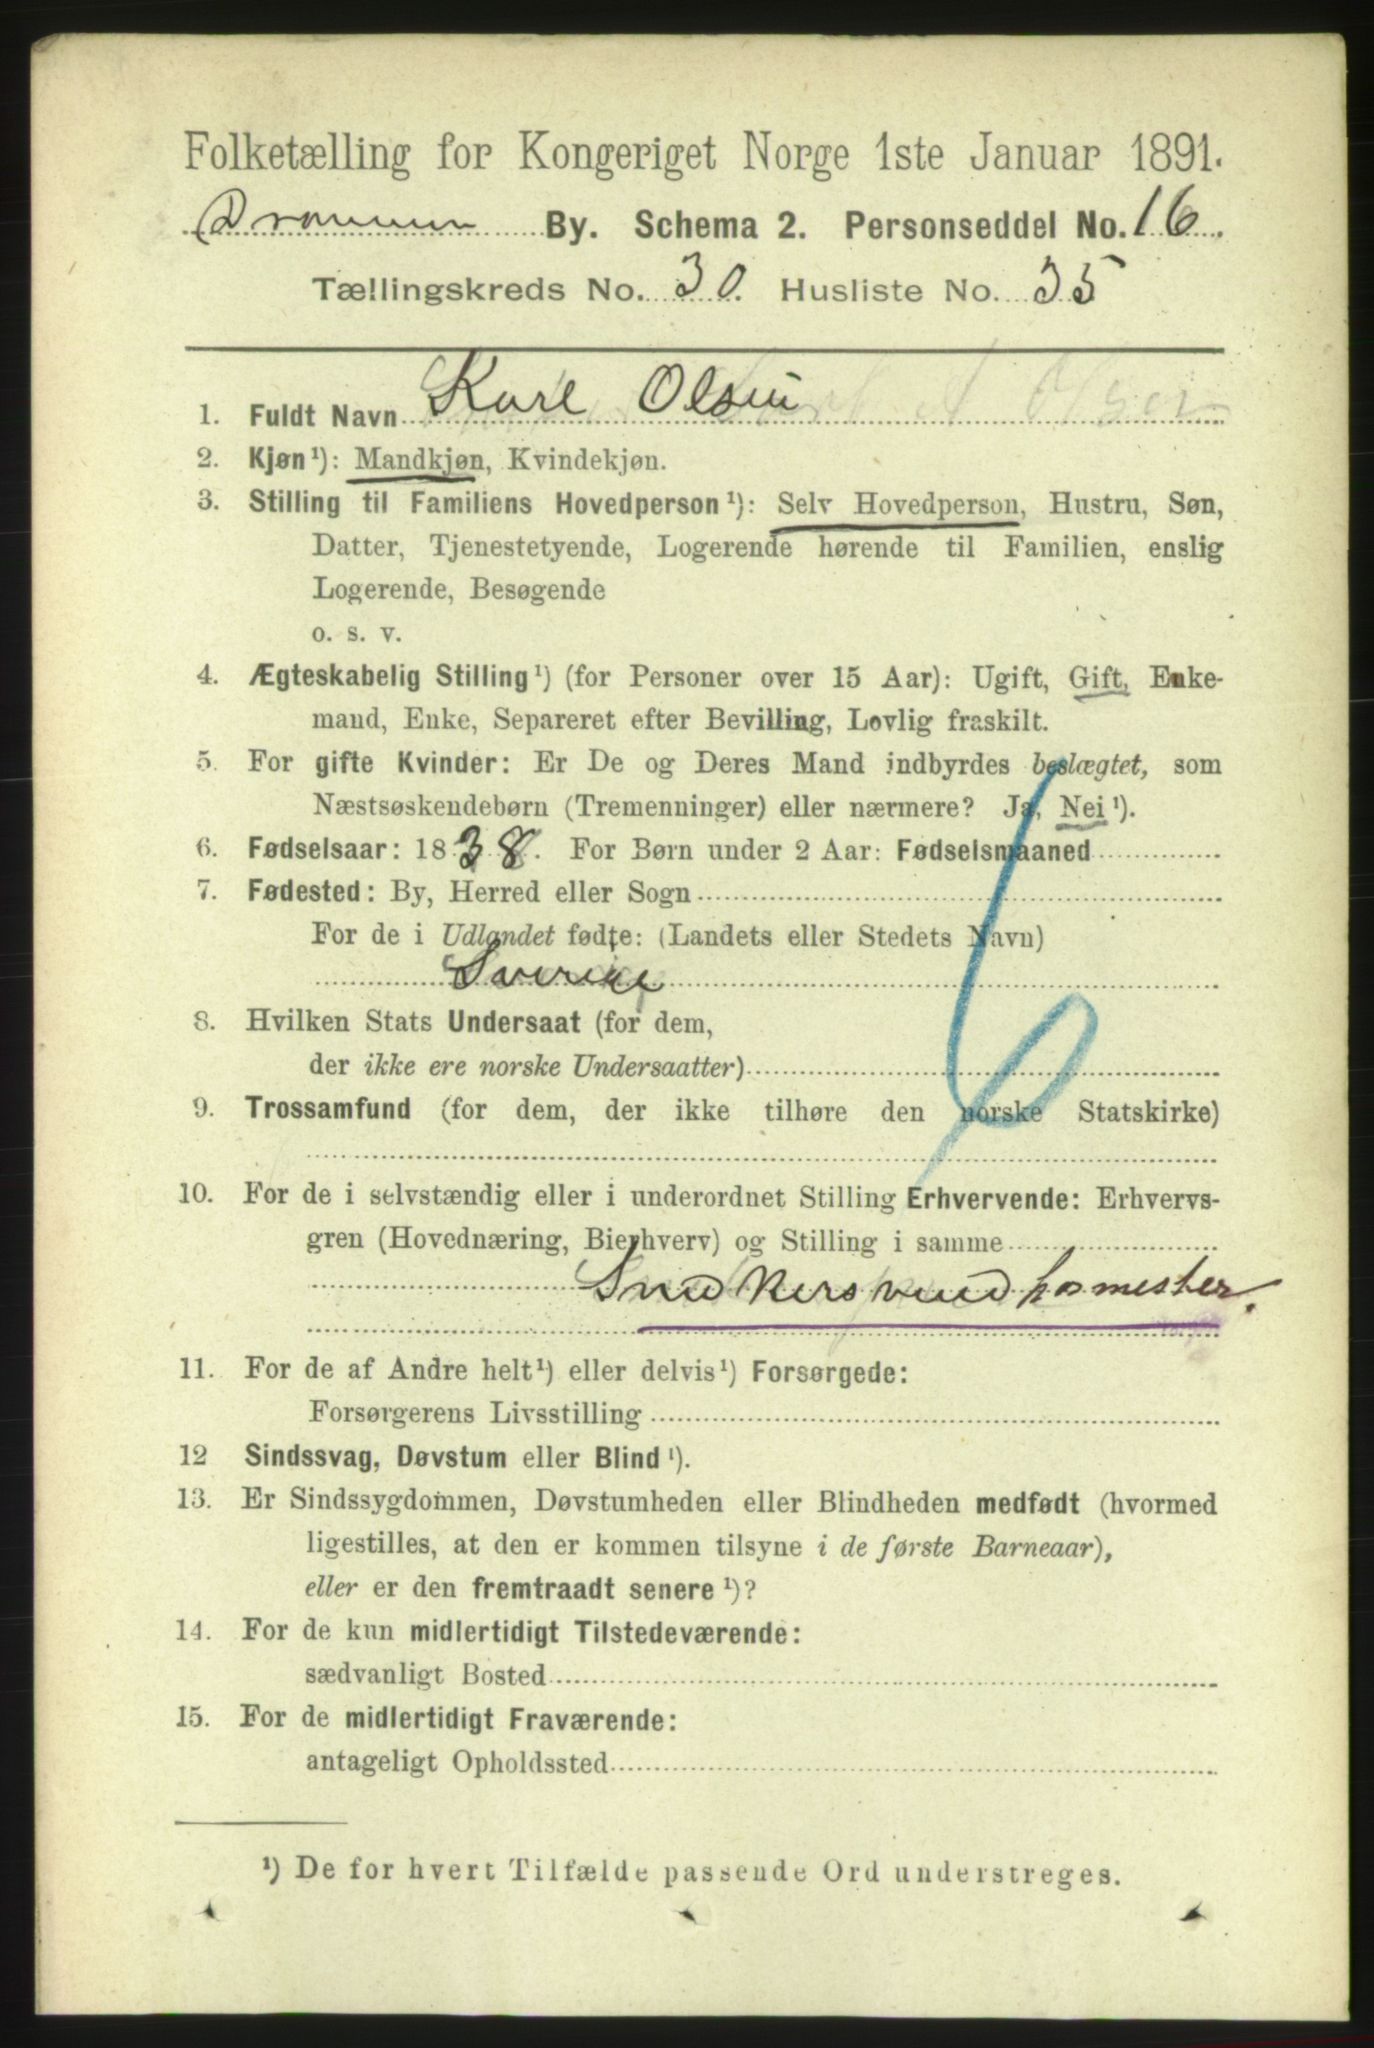 Folketælling for Kongeriget Norge 1ste Januar 1891.
Drammen By. Schema 2. Personseddel No. 16.
Tællingskreds No. 30. Husliste No. 35
1. Fuldt Navn Karl Olsen
2. Kjøn¹): Mandkjøn, Kvindekjøn.
3. Stilling til Familiens Hovedperson¹): Selv Hovedperson, Hustru, Søn,
Datter, Tjenestetyende, Logerende hørende til Familien, enslig
Logerende, Besøgende
o. s. v.
4. Ægteskabelig Stilling¹) (for Personer over 15 Aar): Ugift, Gift, Enke-
mand, Enke, Separeret efter Bevilling, Lovlig fraskilt.
5. For gifte Kvinder: Er De og Deres Mand indbyrdes beslægtet, som
Næstsøskendebørn (Tremenninger) eller nærmere? Ja, Nei¹).
6. Fødselsaar: 1838. For Børn under 2 Aar: Fødselsmaaned
7. Fødested: By, Herred eller Sogn
For de i Udlandet fødte: (Landets eller Stedets Navn)
Sverige
8. Hvilken Stats Undersaat (for dem,
der ikke ere norske Undersaatter)
9. Trossamfund (for dem, der ikke tilhøre den norske Statskirke)
10. For de i selvstændig eller i underordnet Stilling Erhvervende: Erhvervs-
gren (Hovednæring, Bierhverv) og Stilling i samme
Snedkersvend hos mester.
11. For de af Andre helt¹) eller delvis¹) Forsørgede:
Forsørgerens Livsstilling
12 Sindssvag, Døvstum eller Blind¹).
13. Er Sindssygdommen, Døvstumheden eller Blindheden medfødt (hvormed
ligestilles, at den er kommen tilsyne i de første Barneaar),
eller er den fremtraadt senere¹)?
14. For de kun midlertidigt Tilstedeværende:
sædvanligt Bosted
15. For de midlertidigt Fraværende:
antageligt Opholdssted
¹) De for hvert Tilfælde passende Ord understreges.